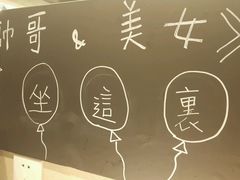 帥哥 & 美女》
坐這裏